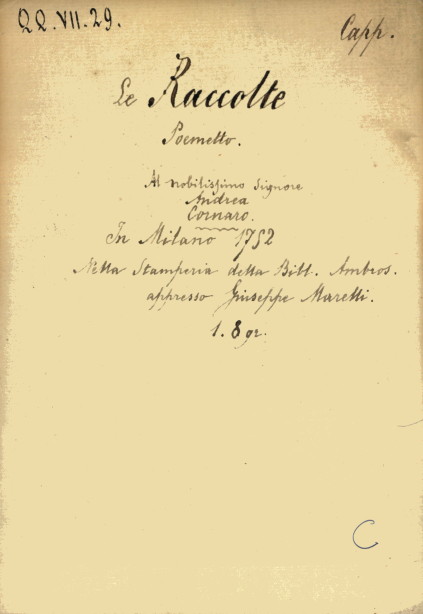 QQ.VII.29.
Capp.
Le Raccolte
Poemetto.
Al nobilissimo Signore
Andrea
Cornaro.
In Milano 1752
Nella Stamperia della Bibl. Ambros.
appresso Giuseppe Marelli.
1. 8 gr.
C